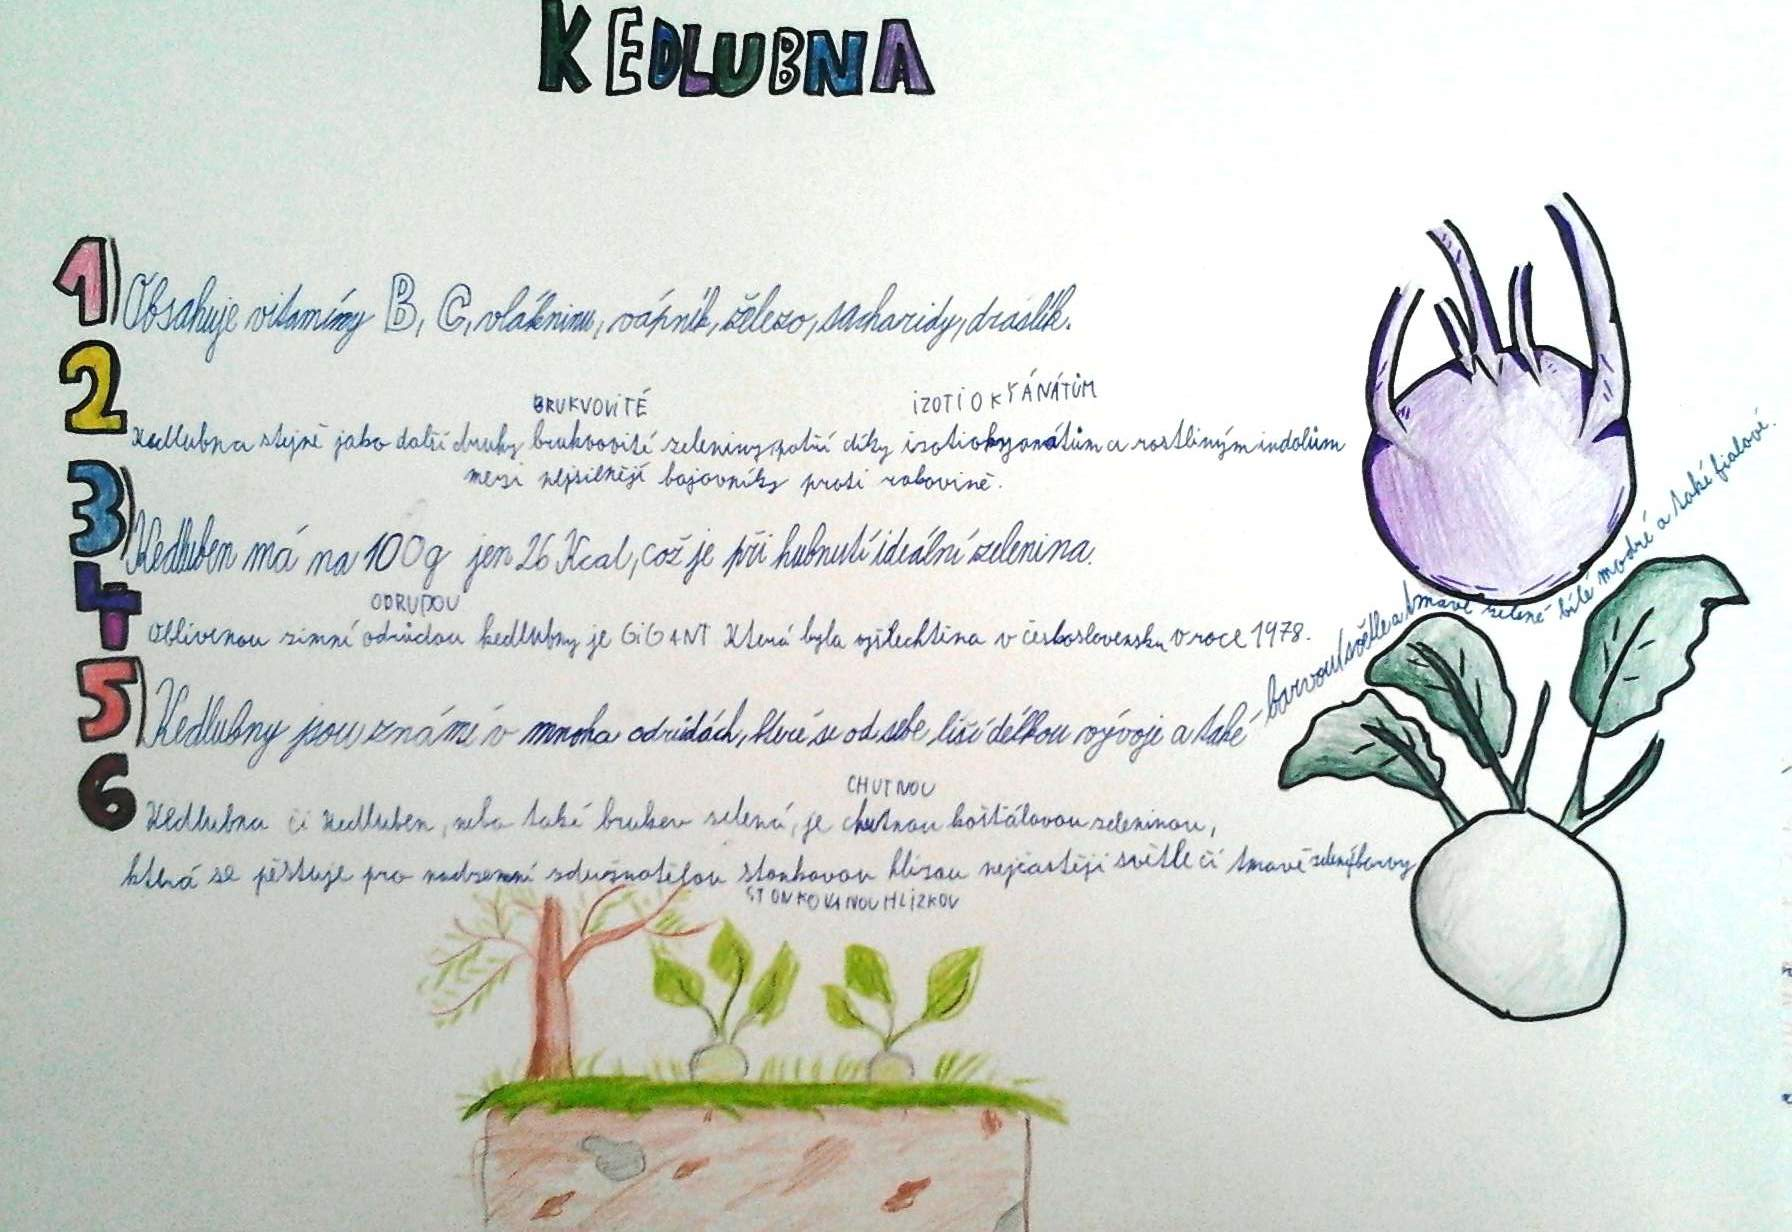 KEDLUBNA
1) Obsahuje vitamíny B, C, vlákninu, vápník, železo, sacharidy, draslík.
BRUKVOVITÉ IZOTIOKYÁNÁTŮM
2 Kedlubna stejně jako další druhy brukvovité zeleniny, patří díky izotiokyanátům a rostliným indolům
mezi nejsilnější bojovníky proti rakovině.
3) Kedluben má na 100g jen 26 Kcal, což je při hubnutí ideální zelenina.
ODRUDOU
4 Oblíbenou zimní odrůdou kedlubny je GiGANT Která byla vyšlechtěna v československu v roce 1978.
5) Kedlubny jsou známé v mnoha odrůdách, které se od sebe liší délkou vývoje a také barvou (světle a tmavě zelené bílé modré a také fialové.
CHUTNOU
6 Kedlubna či Kedluben, nebo také brukev zelená, je chutnou košťálovou zeleninou,
která se pěstuje pro nadzemní zdužnatělou stonkovou hlízou nejčastěji světle či tmavě zelené barvy
STONKOVANOU HLÍZKOU